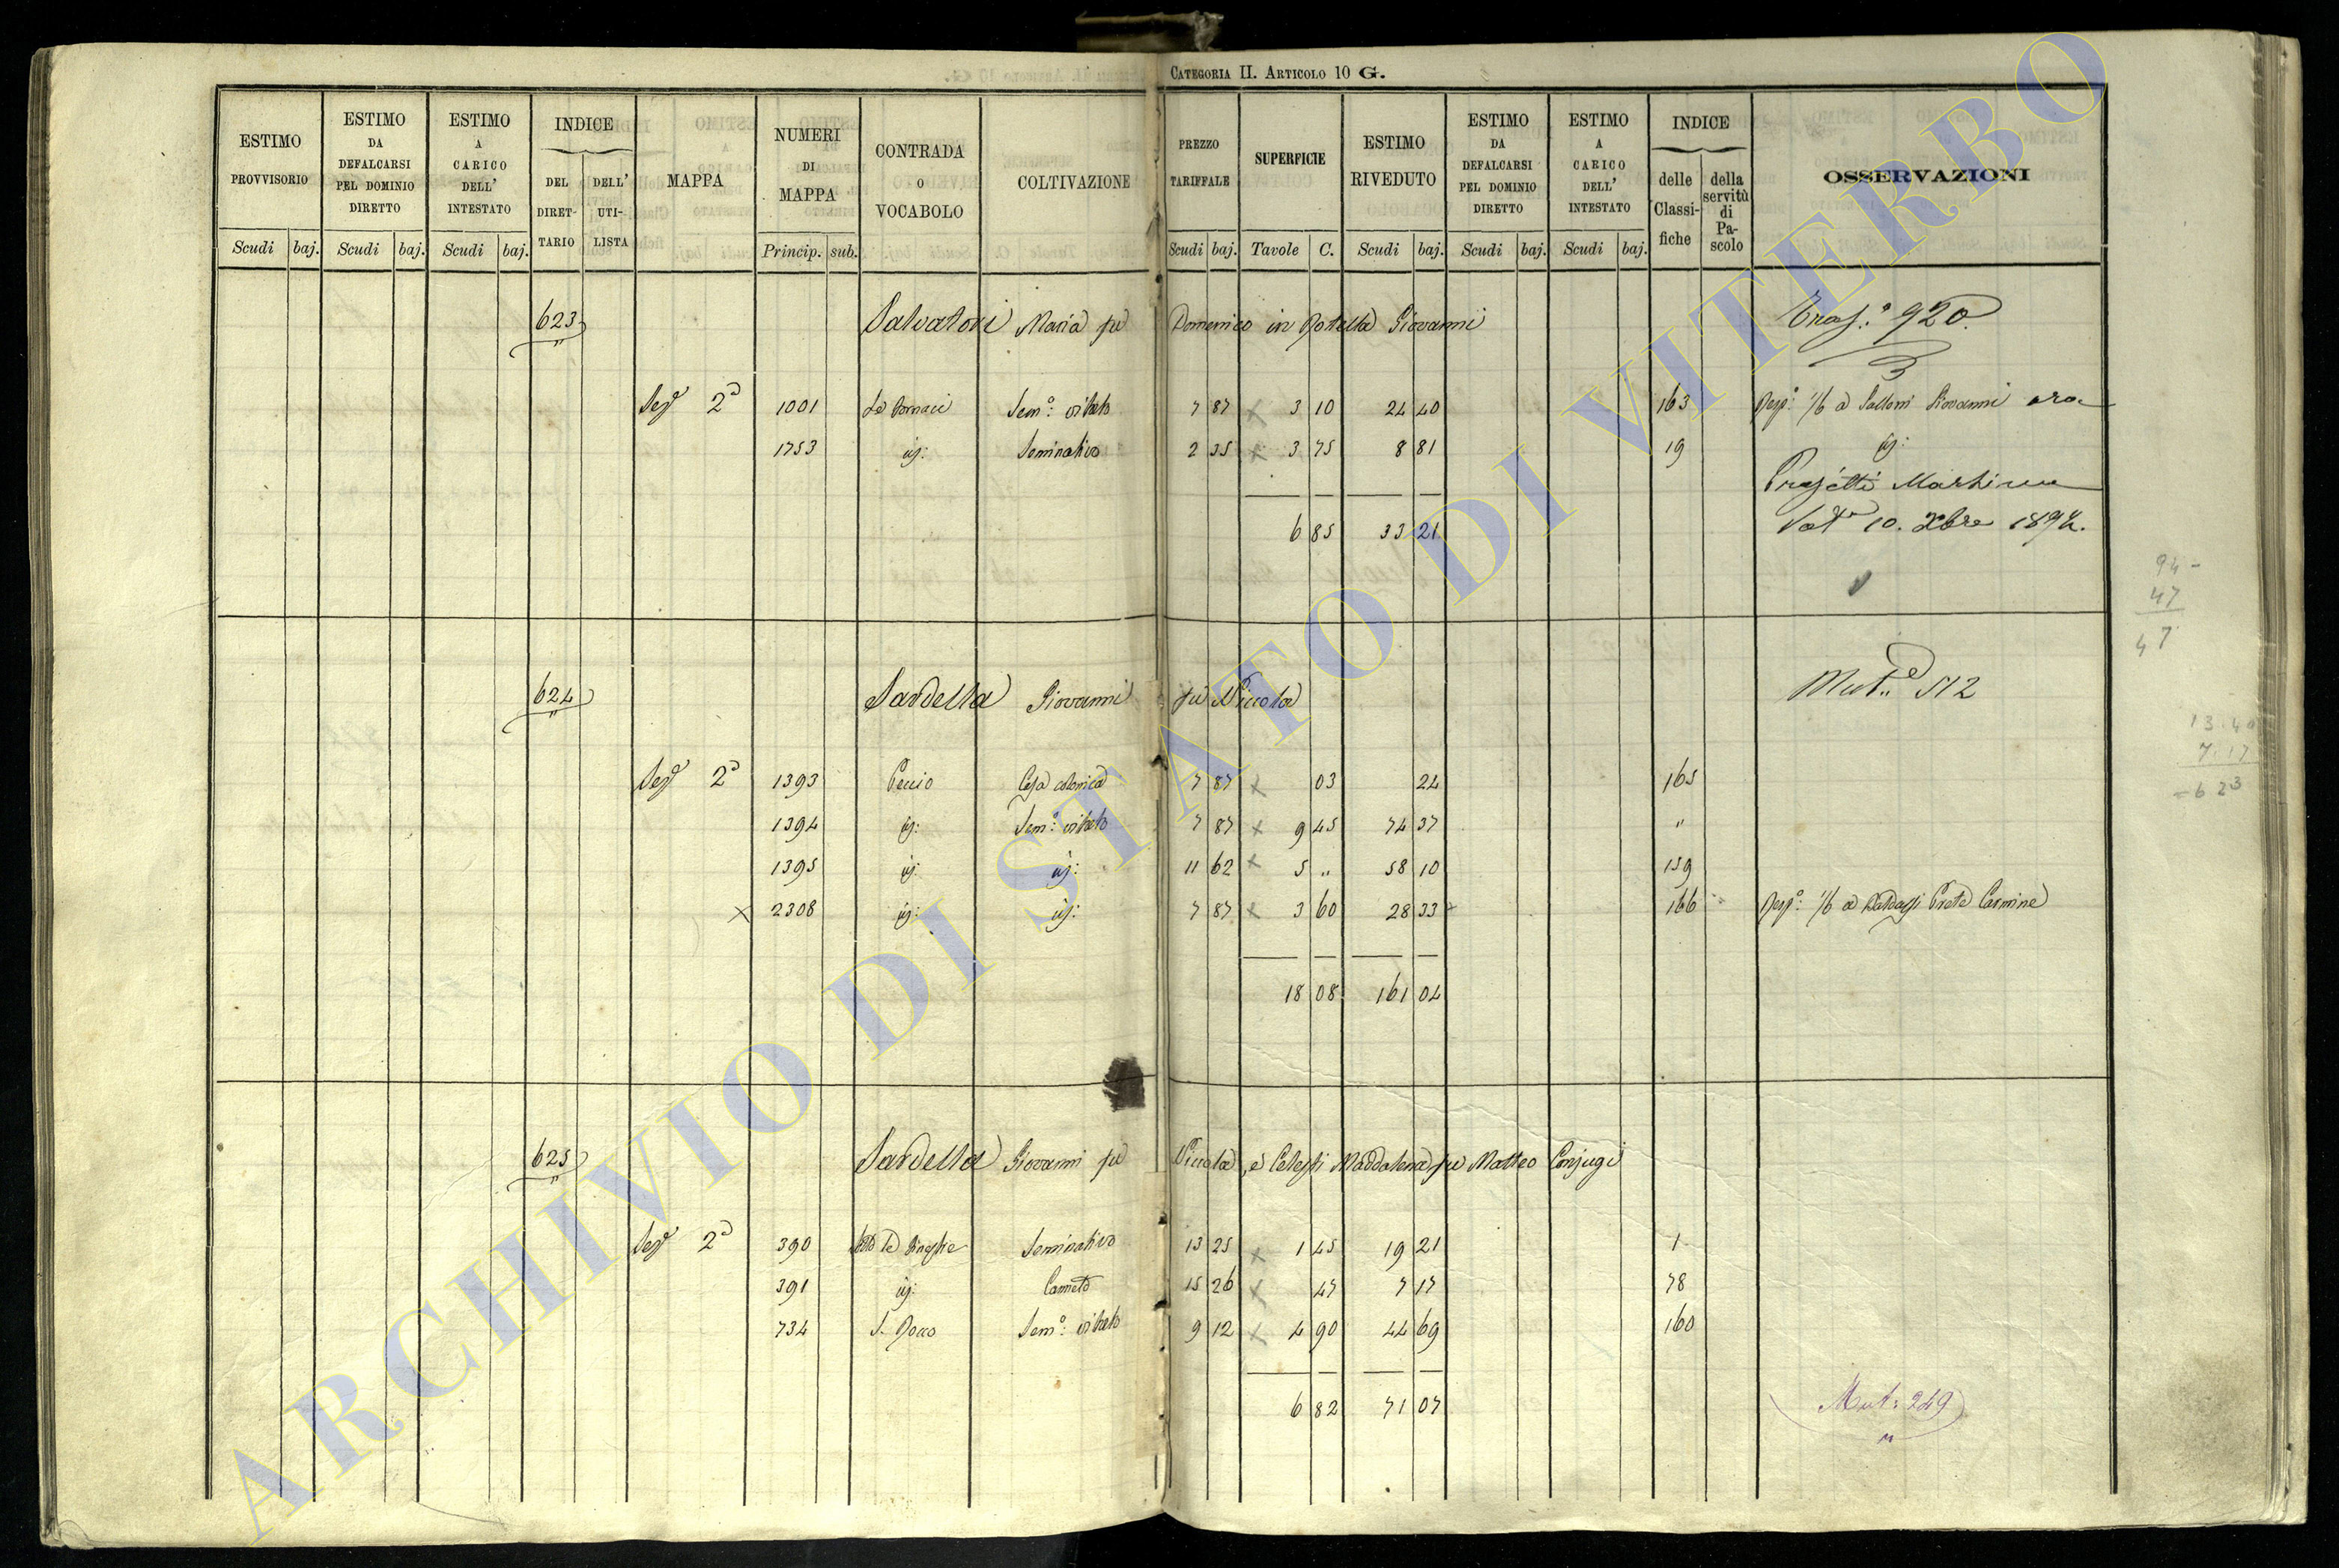 CATEGORIA II. ARTICOLO 10 G.
ESTIMO PROVVISORIO
ESTIMO DA DEFALCARSI PEL DOMINIO DIRETTO
ESTIMO A CARICO DELL' INTESTATO
INDICE
DEL DIRET- TARIO
DELL' UTI- LISTA
MAPPA
NUMERI DI MAPPA
CONTRADA O VOCABOLO
COLTIVAZIONE
PREZZO TARIFFALE
SUPERFICIE
ESTIMO RIVEDUTO
ESTIMO DA DEFALCARSI PEL DOMINIO DIRETTO
ESTIMO A CARICO DELL' INTESTATO
INDICE
delle Classi- fiche
della servitù di Pa- scolo
OSSERVAZIONI
Scudi baj. Scudi baj. Scudi baj. Princip. sub. Scudi baj. Tavole C. Scudi baj. Scudi baj. Scudi baj.
623 Salvatori Maria fu Domenico in Rotella Giovanni Trasp.º 920
Sez.e 2a 1001 Le Fornaci Sem.º: vitato 7 87 3 10 24 40 163 Resp.: 1/6 a Giovanni ora
1753 id: Seminativo 2 35 3 75 8 81 19 id:
Projetti
6 85 33 21 10. Xbre 1894.
94 -
47
47
624 Sardella Giovanni fu Niccola Mut.e 512
Sez.e 2a 1393 Peccio Casa colonica 7 87 03 24 165
1394 id: Sem.º: vitato 7 87 9 45 74 37 "
1395 id: id: 11 62 5 " 58 10 159
x 2308 id: id: 7 87 3 60 28 33 166 Resp.: 1/6 a Prete Carmine
18 08 161 04
13.40
7.17
= 6 23
625 Sardella Giovanni fu Niccola, e Celesti Maddalena fu Matteo Conjugi
Sez.e 2a 390 Seminativo 13 25 1 45 19 21 1
391 id: Canneto 15 26 47 7 17 78
734 S. Rocco Sem.º: vitato 9 12 4 90 44 69 160
6 82 71 07 Mut: 249
ARCHIVIO DI STATO DI VITERBO